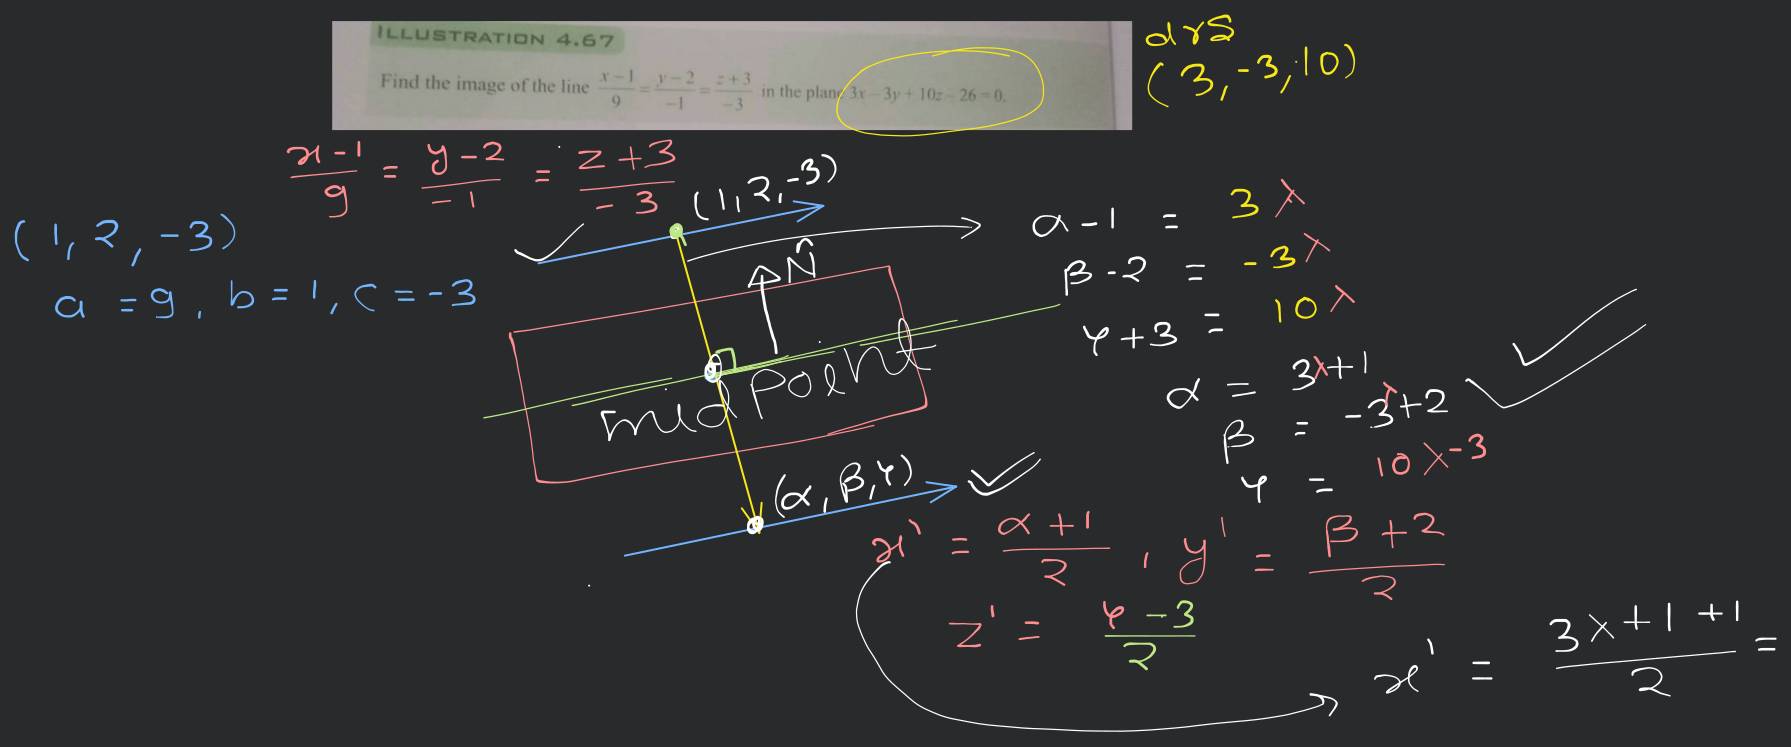 ILLUSTRATION 4.67
Find the image of the line (x-1)/9 = (y-2)/-1 = (z+3)/-3 in the plane 3x - 3y + 10z - 26 = 0.
drs
(3, -3, 10)
(x-1)/9 = (y-2)/-1 = (z+3)/-3
(1, 2, -3)
(1, 2, -3)
a = 9, b = 1, c = -3
N̂
mid point
(α, β, γ)
α-1 = 3λ
β-2 = -3λ
γ+3 = 10λ
α = 3λ+1
β = -3λ+2
γ = 10λ-3
x' = (α+1)/2, y' = (β+2)/2
z' = (γ-3)/2
x' = (3λ+1+1)/2 =